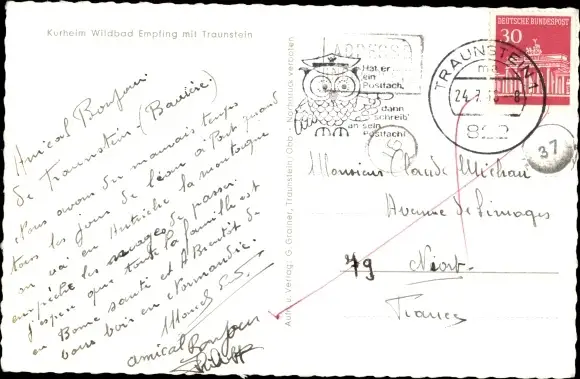 Kurheim Wildbad Empfing mit Traunstein
Amical Bonjour
de Traunstein (Bavière).
Nous avons du mauvais temps
tous les jours de à Part quand
on va en Autriche la montagne
empêche les nuages de passer.
J'espère que toute la famille est
en Bonne santé et A Bientôt de
vous voir en Normandie.
amical Bonjour
Aufn. u. Verlag: G. Grainer, Traunstein, Obb. - Nachdruck verboten
Hat er
ein
Postfach,
dann
schreib'
an sein
Postfach!
TRAUNSTEIN 1
24.7.
822
DEUTSCHE BUNDESPOST
30
37
Monsieur Claude Michau
Avenue de Limoges
79 Niort.
France